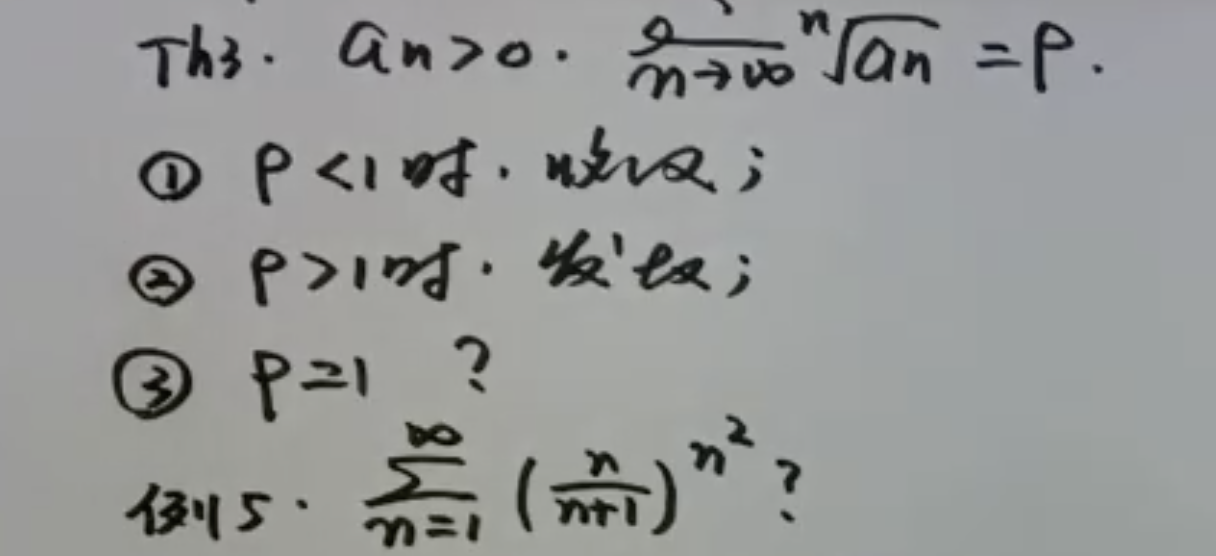 Th3. an>0. lim n→∞ ⁿ√an = ρ.
① ρ<1时. 收敛;
② ρ>1时. 发散;
③ ρ=1 ?
例5. ∑_{n=1}^{∞} (n/(n+1))^{n²} ?